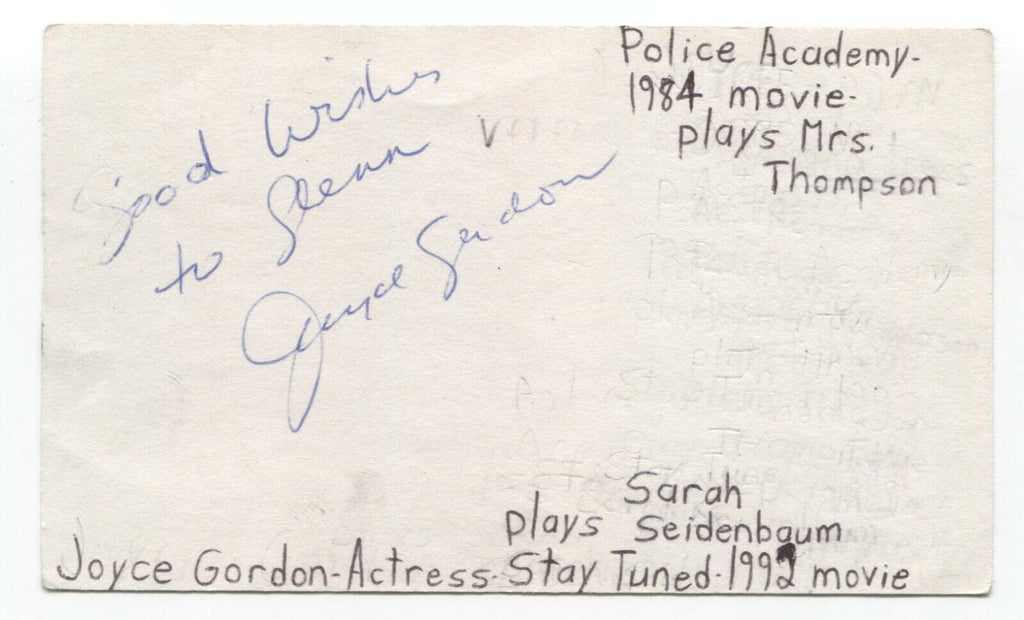 Good Wishes
to Glenn
Joyce Gordon
Police Academy-
1984 movie-
plays Mrs.
Thompson
Sarah
plays Seidenbaum
Joyce Gordon-Actress-Stay Tuned-1992 movie